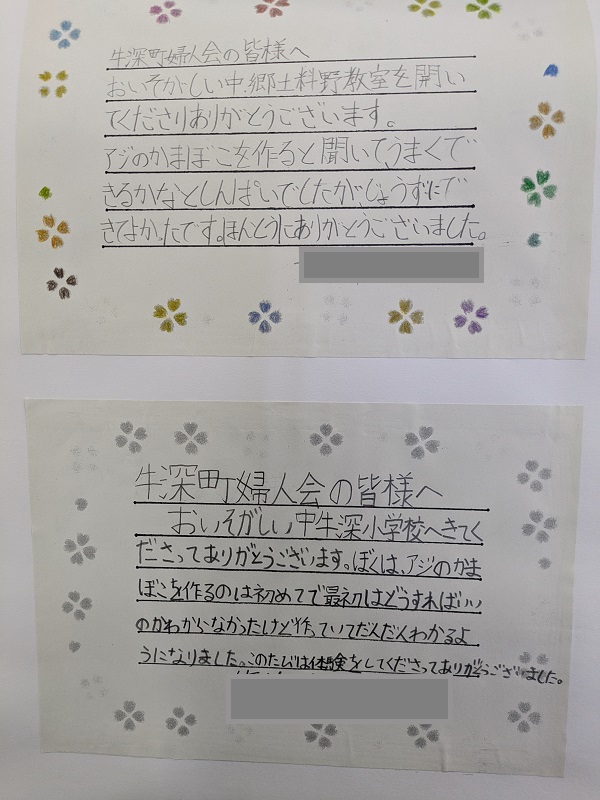 牛深町婦人会の皆様へ
おいそがしい中、郷土料野教室を開い
てくださりありがとうございます。
アジのかまぼこを作ると聞いて、うまくで
きるかなとしんぱいでしたが、じょうずにで
きてよかったです。ほんとうにありがとうございました。
牛深町婦人会の皆様へ
おいそがしい中牛深小学校へきてく
ださってありがとうございます。ぼくは、アジのかま
ぼこを作るのは初めてで最初はどうすればいい
のかわからなかったけど作っていてだんだんわかるよ
うになりました。このたびは体験をしてくださってありがとうございました。